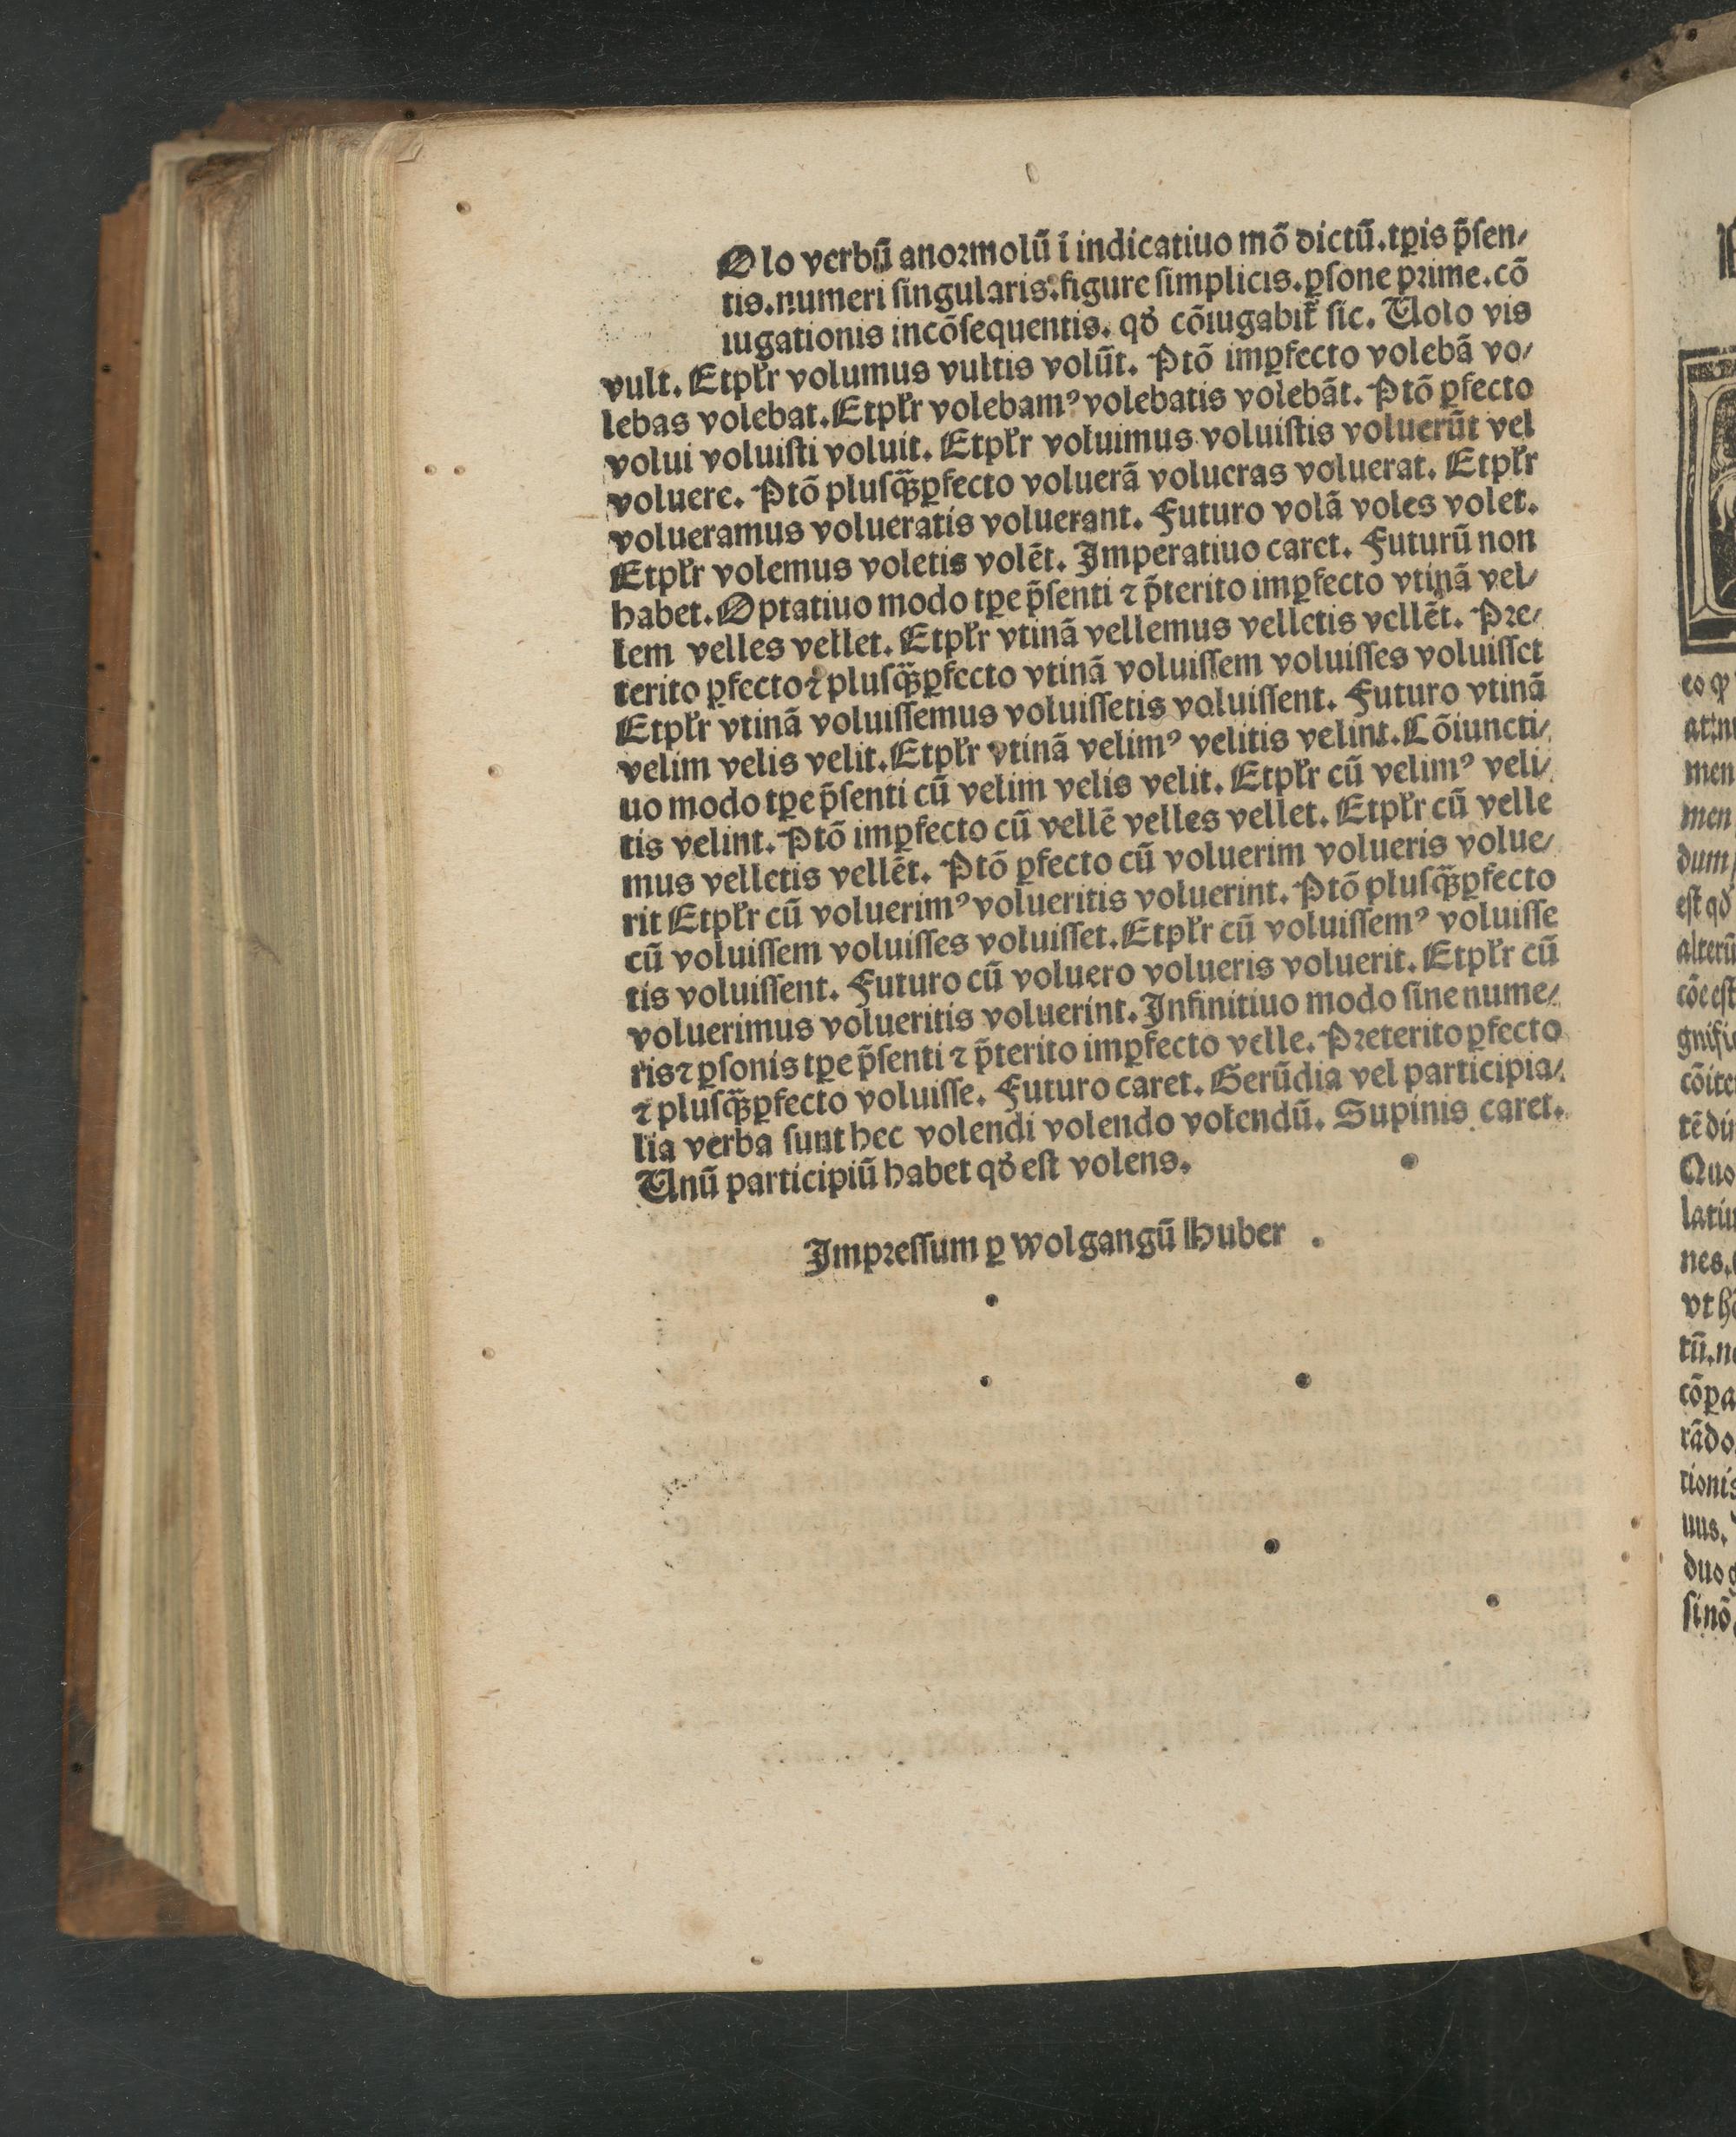 Olo verbũ anormolũ ĩ indicatiuo mõ dictũ.tꝑis p̃ſen⸗
tis.numeri ſingularis.figure ſimplicis.ꝑſone prime.cõ
iugationis incõſequentis. qđ cõiugabit̃ ſic. Uolo vis
vult. Etpłr volumus vultis volũt. Ptõ imꝑfecto volebã vo⸗
lebas volebat.Etpłr volebamꝰ volebatis volebãt. Ptõ ꝑfecto
volui voluiſti voluit. Etpłr voluimus voluiſtis voluerũt vel
voluere. Ptõ pluſq̃ꝑfecto voluerã volueras voluerat. Etpłr
volueramus volueratis voluerant. Futuro volã voles volet.
Etpłr volemus voletis volẽt. Imperatiuo caret. Futurũ non
habet.Optatiuo modo tꝑe p̃ſenti ⁊ p̃terito imꝑfecto vtinã vel⸗
lem velles vellet. Etpłr vtinã vellemus velletis vellẽt. Pre⸗
terito ꝑfecto ⁊ pluſq̃ꝑfecto vtinã voluiſſem voluiſſes voluiſſet
Etpłr vtinã voluiſſemus voluiſſetis voluiſſent. Futuro vtinã
velim velis velit.Etpłr vtinã velimꝰ velitis velint.Cõiuncti⸗
uo modo tꝑe p̃ſenti cũ velim velis velit. Etpłr cũ velimꝰ veli⸗
tis velint. Ptõ imꝑfecto cũ vellẽ velles vellet. Etpłr cũ velle
mus velletis vellẽt. Ptõ ꝑfecto cũ voluerim volueris volue⸗
rit Etpłr cũ voluerimꝰ volueritis voluerint. Ptõ pluſq̃ꝑfecto
cũ voluiſſem voluiſſes voluiſſet.Etpłr cũ voluiſſemꝰ voluiſſe
tis voluiſſent. Futuro cũ voluero volueris voluerit. Etpłr cũ
voluerimus volueritis voluerint.Infinitiuo modo ſine nume⸗
ris ⁊ ꝑſonis tꝑe p̃ſenti ⁊ p̃terito imꝑfecto velle. Preterito ꝑfecto
⁊ pluſq̃ꝑfecto voluiſſe. Futuro caret. Gerũdia vel participia⸗
lia verba ſunt hec volendi volendo volendũ. Supinis caret.
Unũ participiũ habet qđ eſt volens.
Impreſſum ꝑ wolgangũ Huber .
eo ꝙ
men
men
dum
eſt qđ
alterũ
cõe eſt
Quo
nes.
duo